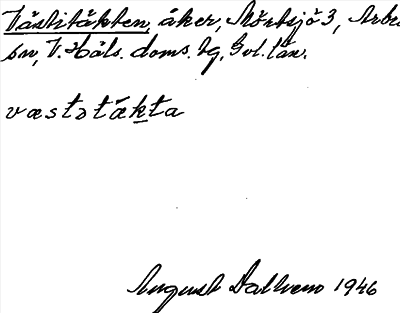 Västitäkten, åker, Mörtsjö 3, Arbrå
sn, V. Häls. doms. bg, Gvl. län.
væstɔtäkta
August Dallvem 1946